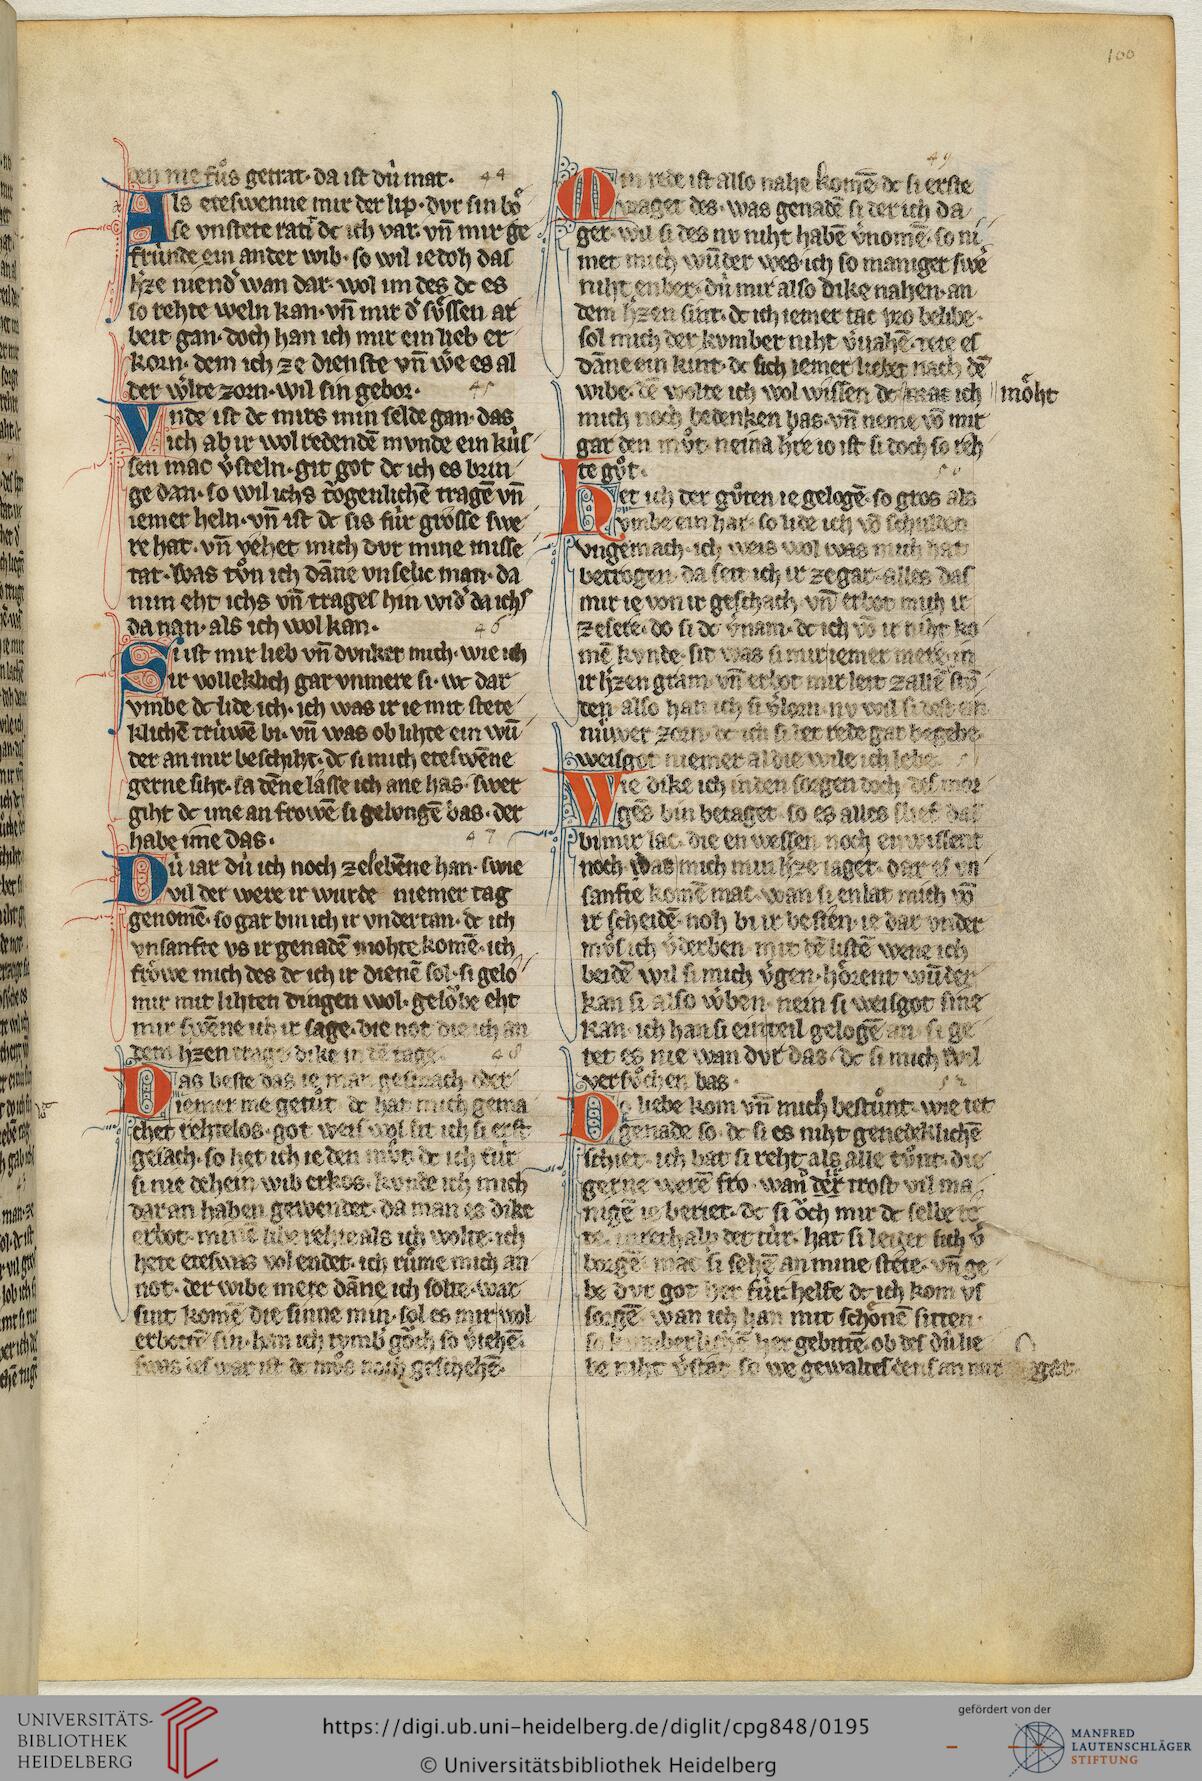 100
den nie fuͦs getrat· da ist dú mat· 44
Als eteswenne mir der lip· dvr sin boͤ
se vnstete ratet dc ich var· vn̄ mir ge
frúnde ein ander wib· so wil iedoh das
h̾ze niend̾ wan dar· wol im des dc es
so rehte weln kan· vn̄ mir d̾ sv̊ssen ar
beit gan· doch han ich mir ein lieb er
korn· dem ich ze dienste vn̄ w̾e es al
der w̾lte zorn· wil sin gebor· 45
Vnde ist dc mirs min selde gan· das
ich ab ir wol redendē mvnde ein kús
sen mac v̾steln· git got dc ich es brin
ge dan· so wil ichs toͮgenlichē tragē vn̄
iemer heln· vn̄ ist dc sis fúr grosse swe
re hat· vn̄ vehet mich dvr mine misse
tat· was tuͦn ich dāne vnselic man· da
nim eht ichs vn̄ trages hin wid̾ da ichs
da nan· als ich wol kan· 46
Si ist mir lieb vn̄ dvnket mich· wie ich
ir volleklich gar vnmere si· wc dar
vmbe dc lide ich· ich was ir ie mit stete
klichē trúwē bi· vn̄ was ob lihte ein wū
der an mir beschiht· dc si mich eteswēne
gerne siht· sa dēne lasse ich ane has· swer
giht dc ime an froͮwē si gelvngē bas· der
habe ime das· 47
Dú iar dú ich noch ze lebēne han· swie
vil der were ir wurde niemer tag
genomē· so gar bin ich ir vndertan· dc ich
vnsanfte vs ir genadē mohte komē· ich
froͤwe mich des dc ich ir dienē sol· si gelo
mir mit lihten dingen wol· geloͮbe eht
mir swēne ich ir sage· die not die ich an
dem h̾zen trage dike in dē tage· 48
Das beste das ie man gesprach· oder
iemer me getuͦt· dc hat mich gema
chet redelos· got weis wol sit ich si erst
gesach· so het ich ie den muͦt· dc ich fúr
si nie dehein wib erkos· kvnde ich mich
dar an haben gewendet· da man es dike
erbot· minē libe rehte als ich wolte· ich
hete eteswas volendet· ich rúme mich an
not· der wibe mere dāne ich solte· war
sint komē die sinne min· sol es mir wol
erbottē sin· han ich tvmb̾ goͮch so v̾iehē·
swas des war ist dc muͦs noch geschehē·
49
Min rede ist also nahe komē dc si erste
vraget des· was genadē si der ich da
ger· wil si des nv niht habē v̾nomē· so ni
met mich wūder wes· ich so maniger swe
niht enber· dú mir also dike nahen· an
dem h̾zen sint· dc ich iemer tac vro belibe·
sol mich der kvmber niht v̾vahē· tete es
dāne ein kint· dc sich iemer lieber nach dē
wibe· dē wolte ich wol wissen dc mac ich || moͤht
mich noch bedenken bas· vn̄ neme võ mir
gar den muͦt· neina h̾re io ist si doch so reh
te guͦt· 50
Het ich der guͦten ie gelogē· so gros als
vmbe ein har· so lide ich võ schulden
vngemach· ich weis wol was mich hat
betrogen· da seit ich ir ze gar· alles das
mir ie von ir geschach· vn̄ erbot mich ir
ze sere· do si dc v̾nam· dc ich võ ir niht ko
mē kvnde· sit was si mir iemer mere in
ir h̾zen gram· vn̄ erbot mir leit ze allē stv̄
den· also han ich si v̾lorn· nv wil si dest ein
núwer zorn· dc ich si der rede gar begebe·
weisgot niemer al die wile ich lebe· 51
Wie dike ich in den sorgen doch· des mor
gēs bin betaget· so es alles slief das
bi mir lac· die en wessen noch en wissent
noch· was mich min h̾ze iaget· dar es vn
sanfte komē mac· wan si enlat mich võ
ir scheidē· noh bi ir besten· ie dar vnder
muͦs ich v̾derben· mit dē listē wene ich
beidē wil si mich v̾gen· hoͤrent wūder
kan si also w̾ben· nein si weisgot sine
kan· ich han si ein teil gelogē an· si ge
tet es nie wan dvr das· dc si mich wil
versuͦchen bas· 52
Do liebe kom vn̄ mich bestuͦnt· wie tet
genade so· dc si es niht genedeklichē
schiet· ich bat si reht als alle tuͦnt· die
gerne werē fro· wan̄ der trost vil ma
nigē ie beriet· dc si oͮch mir dc selbe te
te· inrethalp der túr· hat si leider sich v̾
borgē· mac si sehē an mine stete· vn̄ ge
be dvr got her fúr· helfe dc ich kom vs
sorgē· wan ich han mit schoͤnē sitten
so kvmberlichē her gebittē· ob des dú lie
be niht v̾stat· so we gewaltes dens an mir
UNIVERSITÄTS-
BIBLIOTHEK
HEIDELBERG
https://digi.ub.uni-heidelberg.de/diglit/cpg848/0195
© Universitätsbibliothek Heidelberg
gefördert von der
MANFRED
LAUTENSCHLÄGER
STIFTUNG